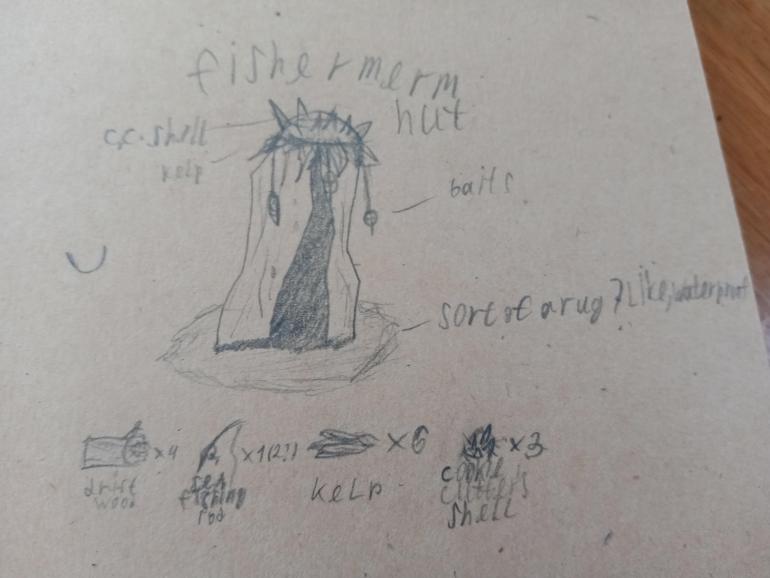 fishermerm
hut
c.c. shell
kelp
baits
sort of a rug? Like, waterproof
x4
x1(2?)
x6
x3
drift
wood
sea
fishing
rod
kelp
cookie
cutter's
shell